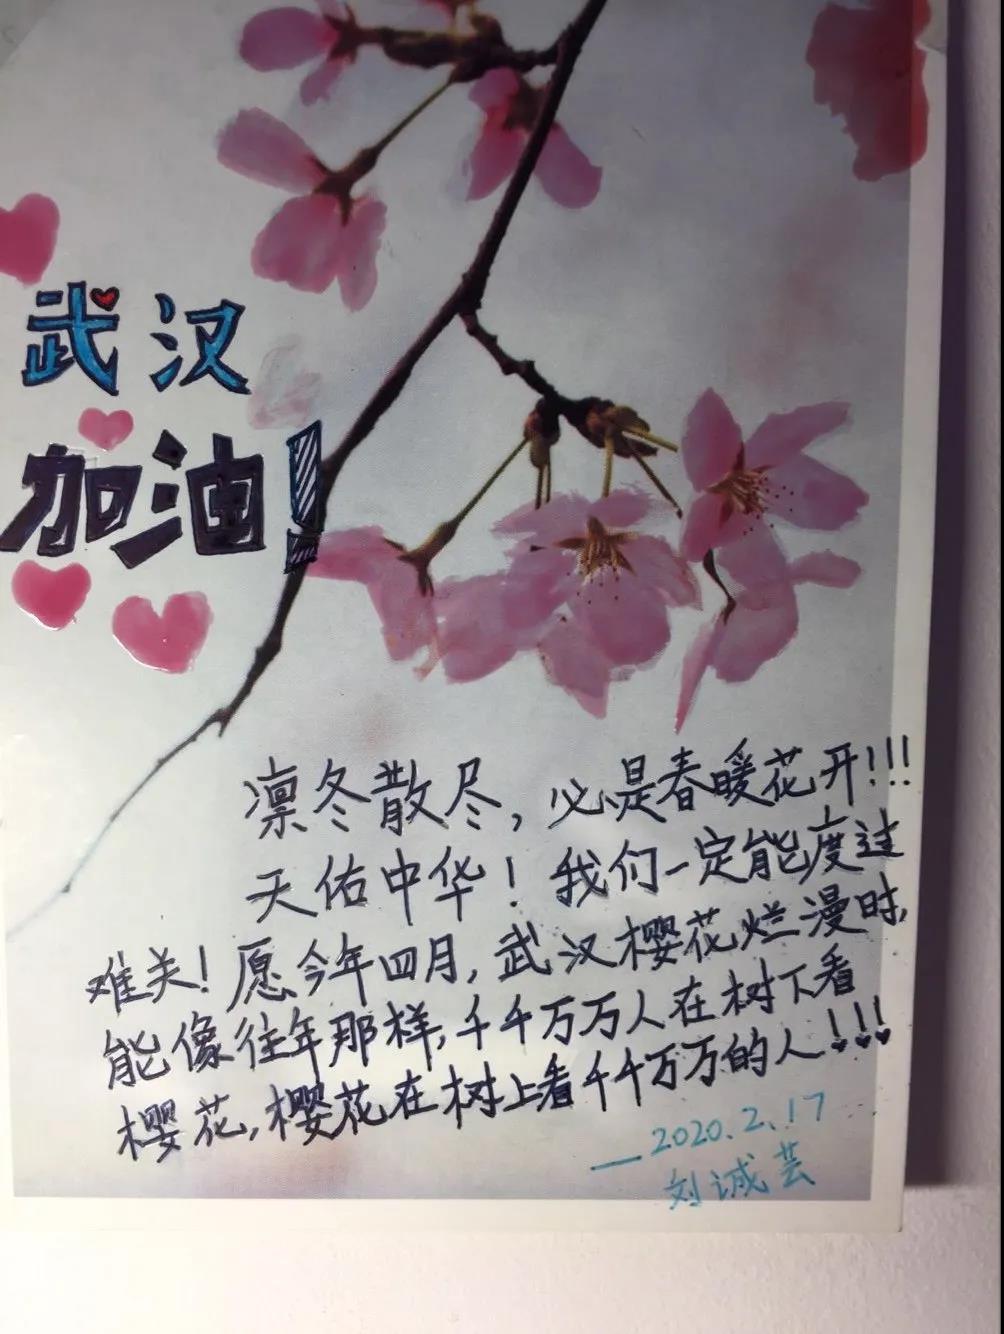 武汉
加油!
凛冬散尽,必是春暖花开!!!
天佑中华!我们一定能度过
难关!愿今年四月,武汉樱花烂漫时,
能像往年那样,千千万万人在树下看
樱花,樱花在树上看千千万万的人!!!
—2020.2.17
刘诚芸